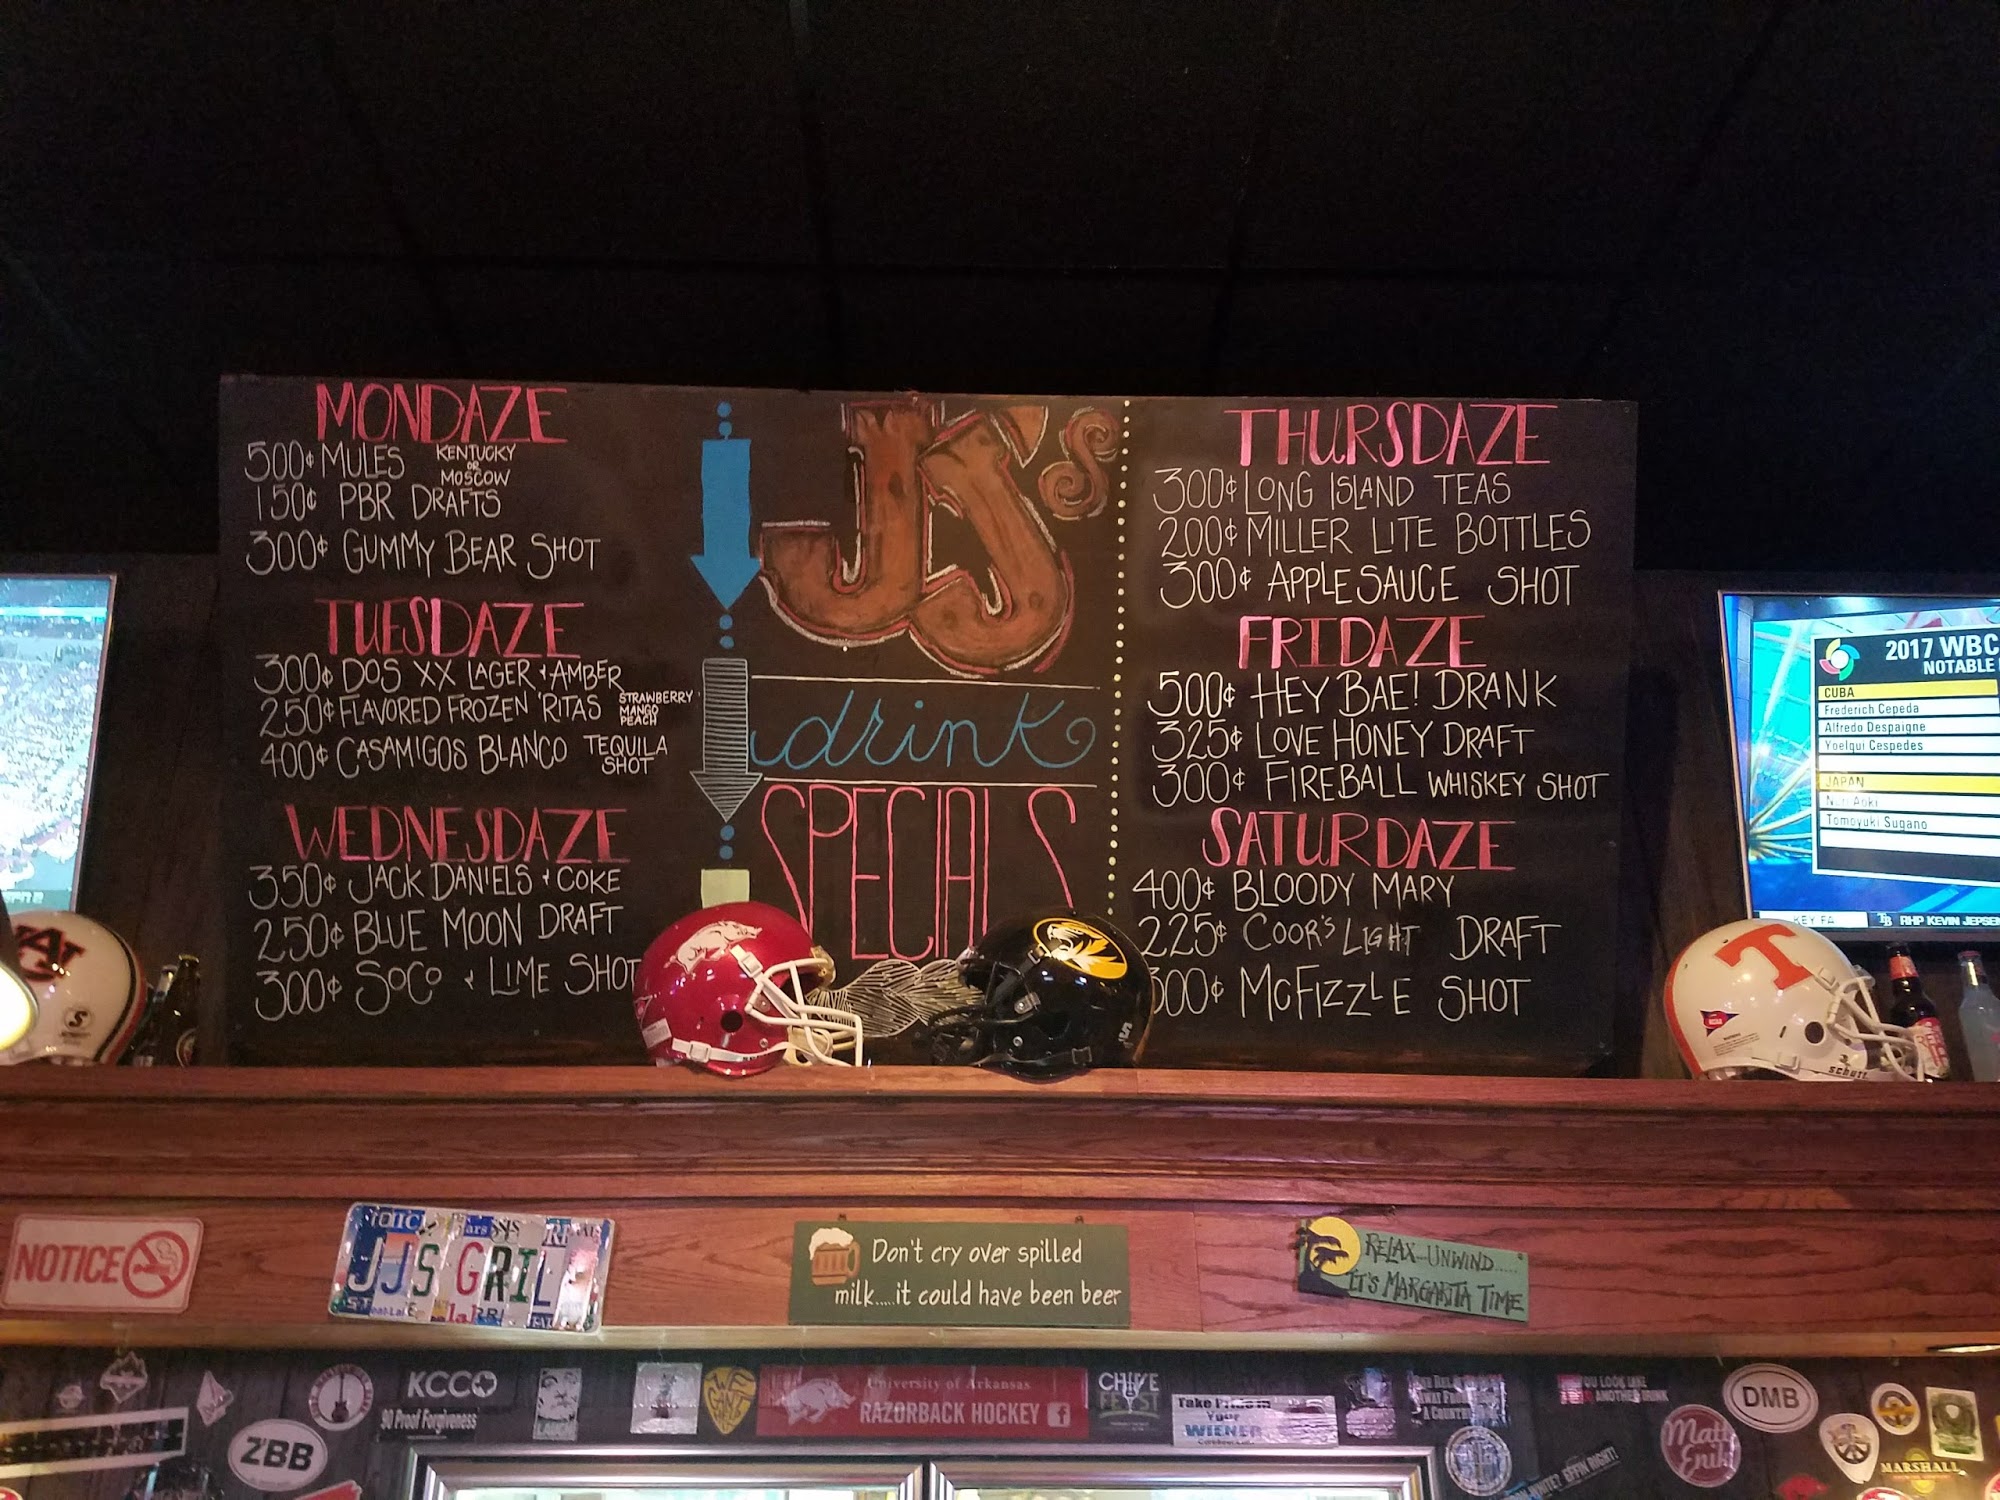 MONDAZE
500¢ MULES KENTUCKY OR MOSCOW
150¢ PBR DRAFTS
300¢ GUMMY BEAR SHOT
TUESDAZE
300¢ DOS XX LAGER + AMBER
250¢ FLAVORED FROZEN 'RITAS STRAWBERRY MANGO PEACH
400¢ CASAMIGOS BLANCO TEQUILA SHOT
WEDNESDAZE
350¢ JACK DANIELS + COKE
250¢ BLUE MOON DRAFT
300¢ SOCO + LIME SHOT
JJ'S
drink
SPECIALS
THURSDAZE
300¢ LONG ISLAND TEAS
200¢ MILLER LITE BOTTLES
300¢ APPLESAUCE SHOT
FRIDAZE
500¢ HEY BAE! DRANK
325¢ LOVE HONEY DRAFT
300¢ FIREBALL WHISKEY SHOT
SATURDAZE
400¢ BLOODY MARY
225¢ COOR'S LIGHT DRAFT
300¢ MCFIZZLE SHOT
2017 WBC
NOTABLE
CUBA
Frederich Cepeda
Alfredo Despaigne
Yoelqui Cespedes
JAPAN
Nori Aoki
Tomoyuki Sugano
KEY FA
TB RHP KEVIN JEPSEN
AU
T
schutt
NOTICE
JJS GRILL
Don't cry over spilled
milk.....it could have been beer
RELAX...UNWIND.....
IT'S MARGARITA TIME
KCCO
90 Proof Forgiveness
ZBB
LAUGH
University of Arkansas
RAZORBACK HOCKEY f
CHIVE
FEST
Take Pride in
Your
WIENER
YOU LOOK LIKE
I NEED ANOTHER DRINK
DMB
Matt
Enik
MARSHALL